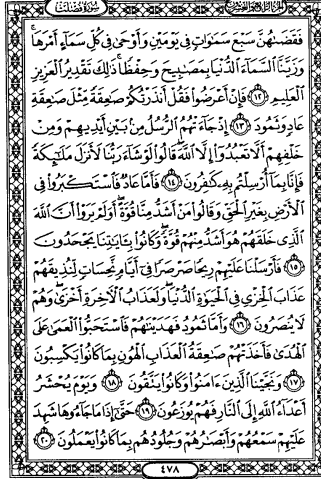 الجزء الرابع والعشرون سورة فصلت
فَقَضَىٰهُنَّ سَبْعَ سَمَٰوَاتٍ فِى يَوْمَيْنِ وَأَوْحَىٰ فِى كُلِّ سَمَآءٍ أَمْرَهَا ۚ
وَزَيَّنَّا ٱلسَّمَآءَ ٱلدُّنْيَا بِمَصَٰبِيحَ وَحِفْظًا ۚ ذَٰلِكَ تَقْدِيرُ ٱلْعَزِيزِ
ٱلْعَلِيمِ ١٢ فَإِنْ أَعْرَضُوا۟ فَقُلْ أَنذَرْتُكُمْ صَٰعِقَةً مِّثْلَ صَٰعِقَةِ
عَادٍ وَثَمُودَ ١٣ إِذْ جَآءَتْهُمُ ٱلرُّسُلُ مِنۢ بَيْنِ أَيْدِيهِمْ وَمِنْ
خَلْفِهِمْ أَلَّا تَعْبُدُوٓا۟ إِلَّا ٱللَّهَ ۖ قَالُوا۟ لَوْ شَآءَ رَبُّنَا لَأَنزَلَ مَلَٰٓئِكَةً
فَإِنَّا بِمَآ أُرْسِلْتُم بِهِۦ كَٰفِرُونَ ١٤ فَأَمَّا عَادٌ فَٱسْتَكْبَرُوا۟ فِى
ٱلْأَرْضِ بِغَيْرِ ٱلْحَقِّ وَقَالُوا۟ مَنْ أَشَدُّ مِنَّا قُوَّةً ۖ أَوَلَمْ يَرَوْا۟ أَنَّ ٱللَّهَ
ٱلَّذِى خَلَقَهُمْ هُوَ أَشَدُّ مِنْهُمْ قُوَّةً ۖ وَكَانُوا۟ بِـَٔايَٰتِنَا يَجْحَدُونَ
١٥ فَأَرْسَلْنَا عَلَيْهِمْ رِيحًا صَرْصَرًا فِىٓ أَيَّامٍ نَّحِسَاتٍ لِّنُذِيقَهُمْ
عَذَابَ ٱلْخِزْىِ فِى ٱلْحَيَوٰةِ ٱلدُّنْيَا ۖ وَلَعَذَابُ ٱلْءَاخِرَةِ أَخْزَىٰ ۖ وَهُمْ
لَا يُنصَرُونَ ١٦ وَأَمَّا ثَمُودُ فَهَدَيْنَٰهُمْ فَٱسْتَحَبُّوا۟ ٱلْعَمَىٰ عَلَى
ٱلْهُدَىٰ فَأَخَذَتْهُمْ صَٰعِقَةُ ٱلْعَذَابِ ٱلْهُونِ بِمَا كَانُوا۟ يَكْسِبُونَ
١٧ وَنَجَّيْنَا ٱلَّذِينَ ءَامَنُوا۟ وَكَانُوا۟ يَتَّقُونَ ١٨ وَيَوْمَ يُحْشَرُ
أَعْدَآءُ ٱللَّهِ إِلَى ٱلنَّارِ فَهُمْ يُوزَعُونَ ١٩ حَتَّىٰٓ إِذَا مَا جَآءُوهَا شَهِدَ
عَلَيْهِمْ سَمْعُهُمْ وَأَبْصَٰرُهُمْ وَجُلُودُهُم بِمَا كَانُوا۟ يَعْمَلُونَ ٢٠
٤٧٨